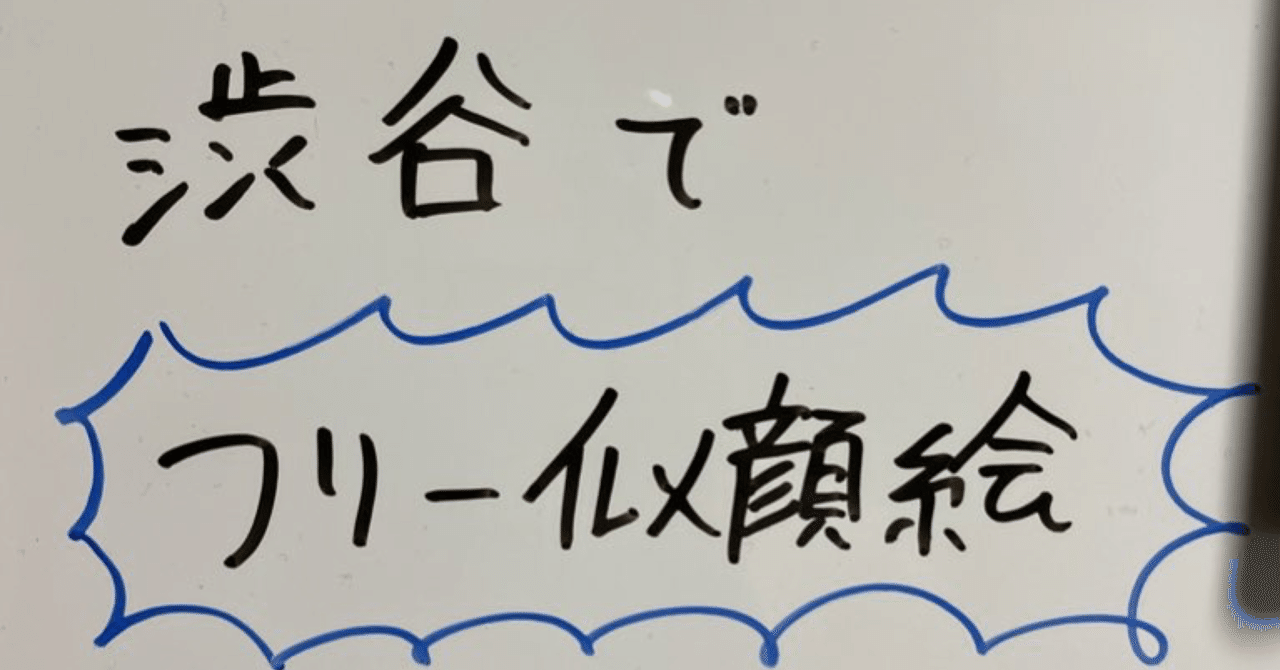 渋谷で
フリー似顔絵